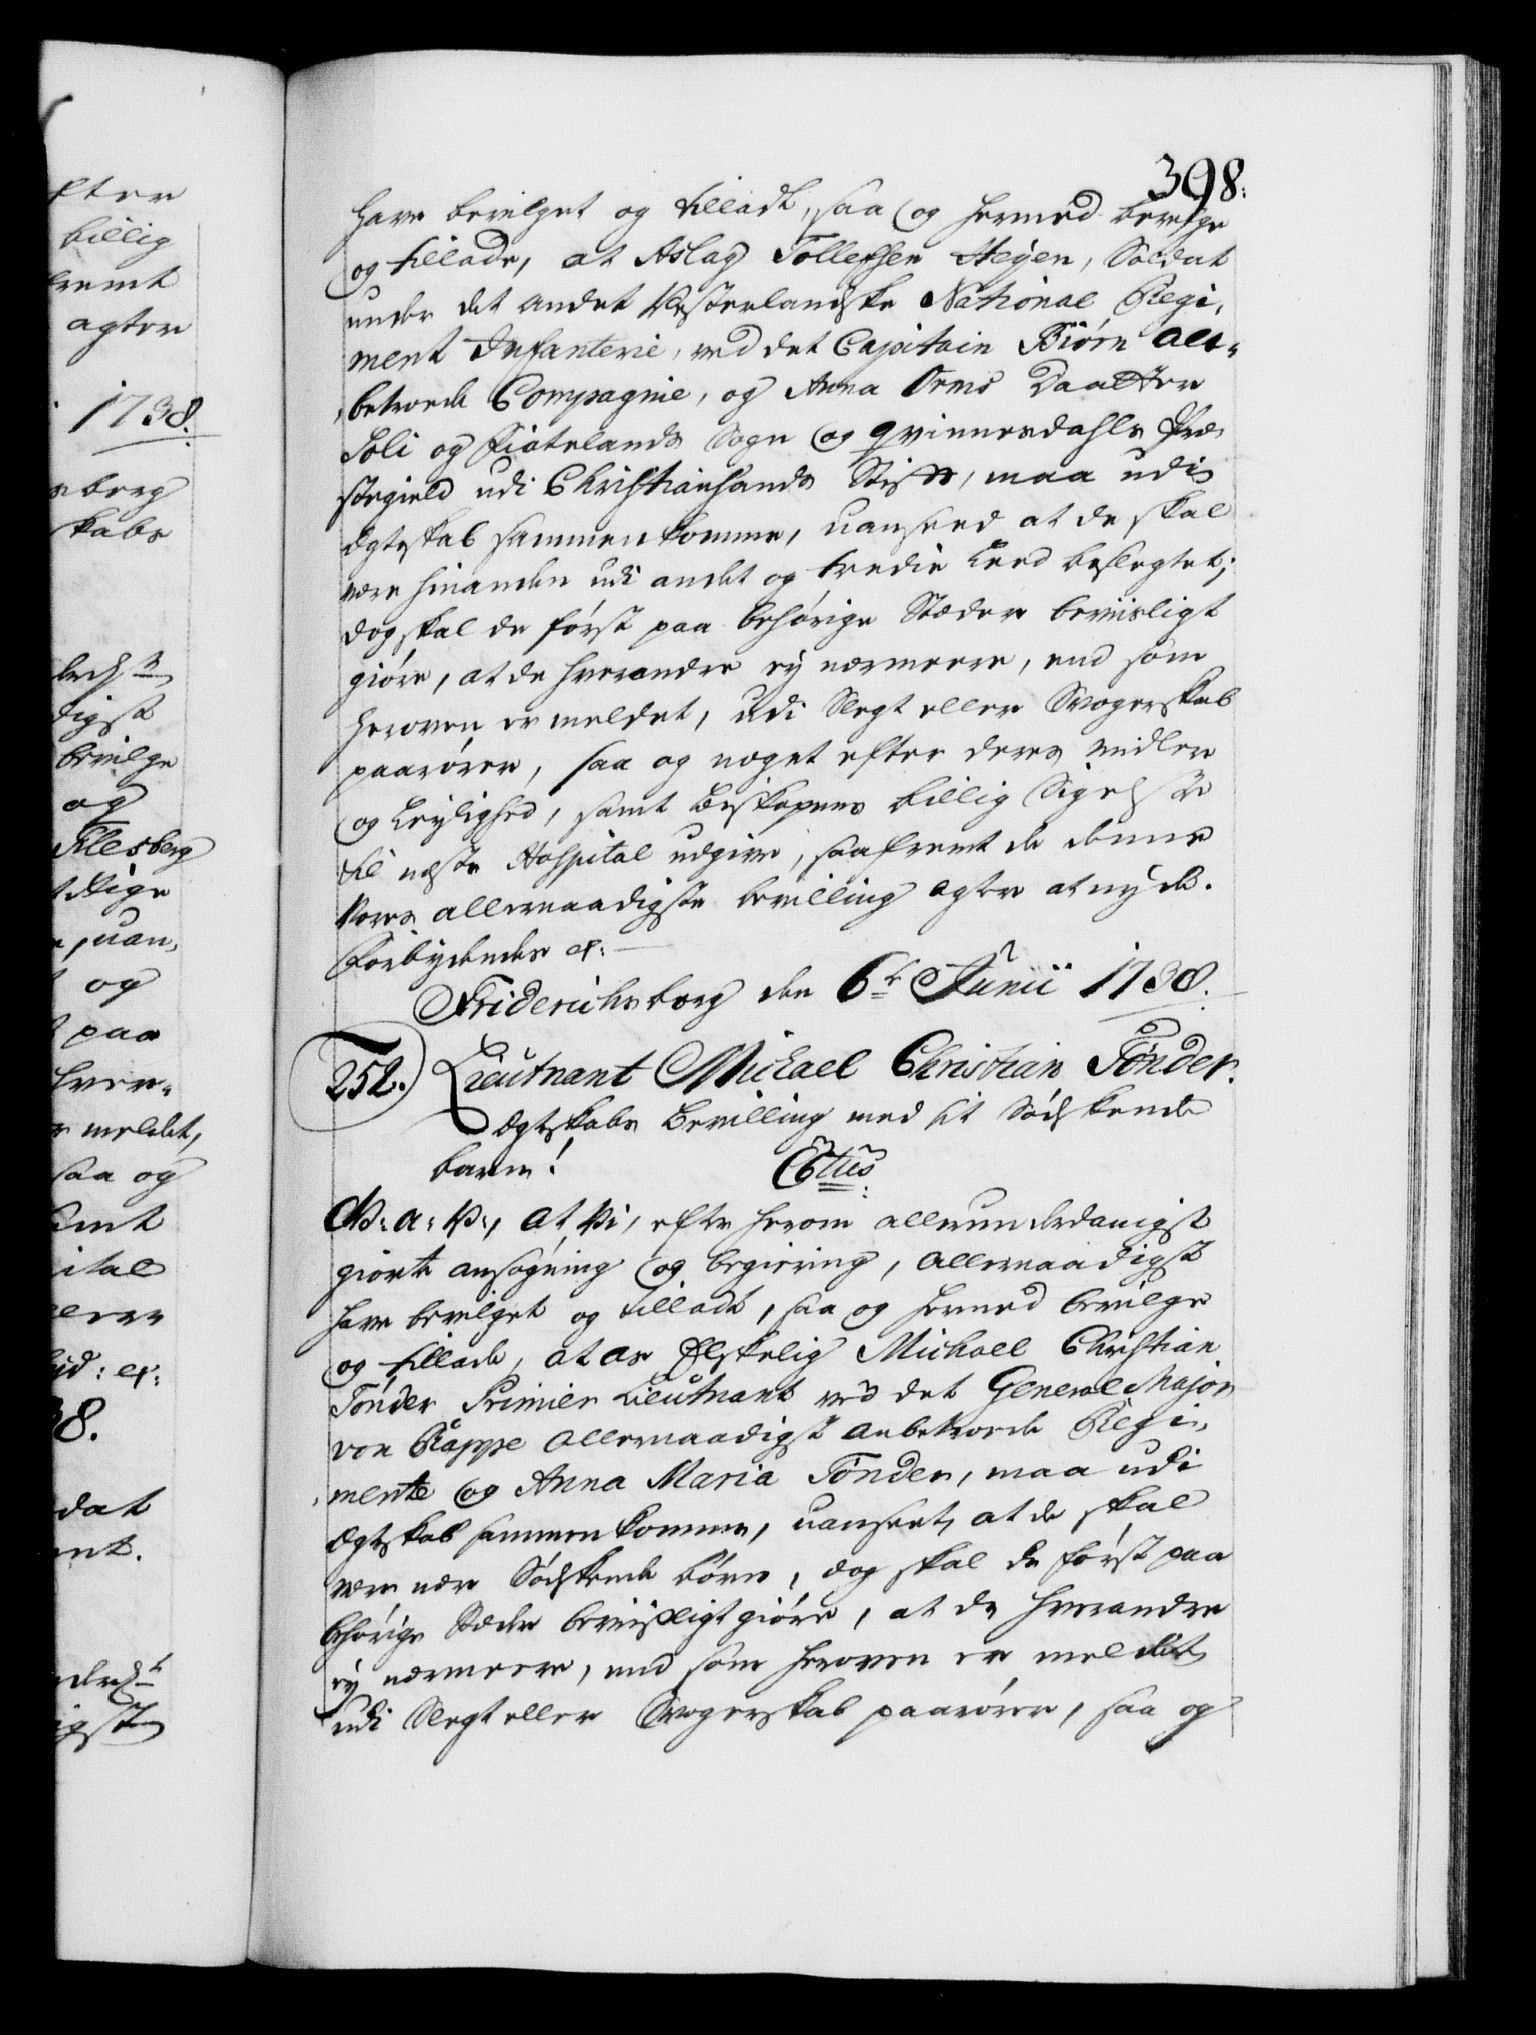 398.
have bevilget og tilladt, saa og hermed bevilge
og tillade, at Aslag Tollefsen Steyen, Soldat
under det andet Vesterlandske National Regi-
ment Infanterie, ved det Capitain Biørn
betroede Compagnie, og Anna Orms Daatter
Soli og Fiotelands Sogn og Qvinnesdahls Præ-
stegield udi Christiansands Stift, maa udi
Ægteskab sammenkomme, uanseed at de skal
være hinanden udi andet og tredie Leed beslegtet;
dog skal de først paa behørige Stæder beviisligt
giøre, at de hverandre ey nærmere, end som
heroven er meldet, udi Slegt eller Svogerskab
paarører, saa og noget efter deres midler
og Leylighed, samt Biskopens billig Sigelse
til neste Hospital udgive, saafremt de denne
Vores allernaadigste bevilling agter at nyde.
Forbydendes etc:
Friderichsborg den 6te Junii 1738.
252. Lieutnant Michael Christian Tønder.
Ægteskabs Bevilling med sit Sødskende
barn! C6tus
G: a: V:, at Vi, efter herom allerunderdanigst
giorte ansøgning og begiering, allernaadigst
have bevilget og tilladt, saa og hermed bevilge
og tillade, at os Elskelig Michael Christian
Tønder Premier Lieutnant ved det General Major
von Rappe allernaadigst anbetroede Regi-
mente og Anna Maria Tønder, maa udi
Ægteskab sammenkomme, uanseet, at de skal
være nær Sødskende børn, dog skal de først paa
behørige Stæder beviisligt giøre, at de hverandre
ey nærmere, end som heroven er meldet
udi Slegt eller Svogerskab paarører, saa og